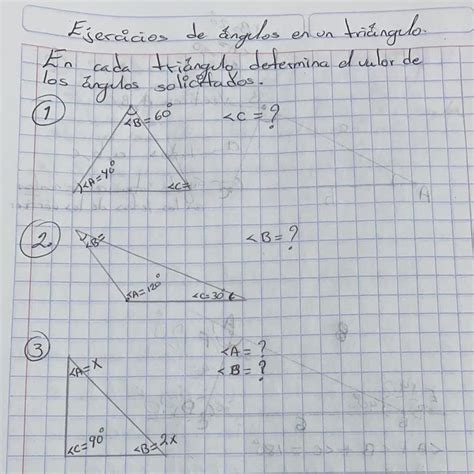 Ejercicios de ángulos en un triángulo.
En cada triángulo determina el valor de
los ángulos solicitados.
1
∢B=60°
∢C=?
∢A=40°
∢C=
2.
∢B=
∢B=?
∢A=120°
∢C=30°
3
∢A=x
∢A=?
∢B=?
∢C=90°
∢B=2x